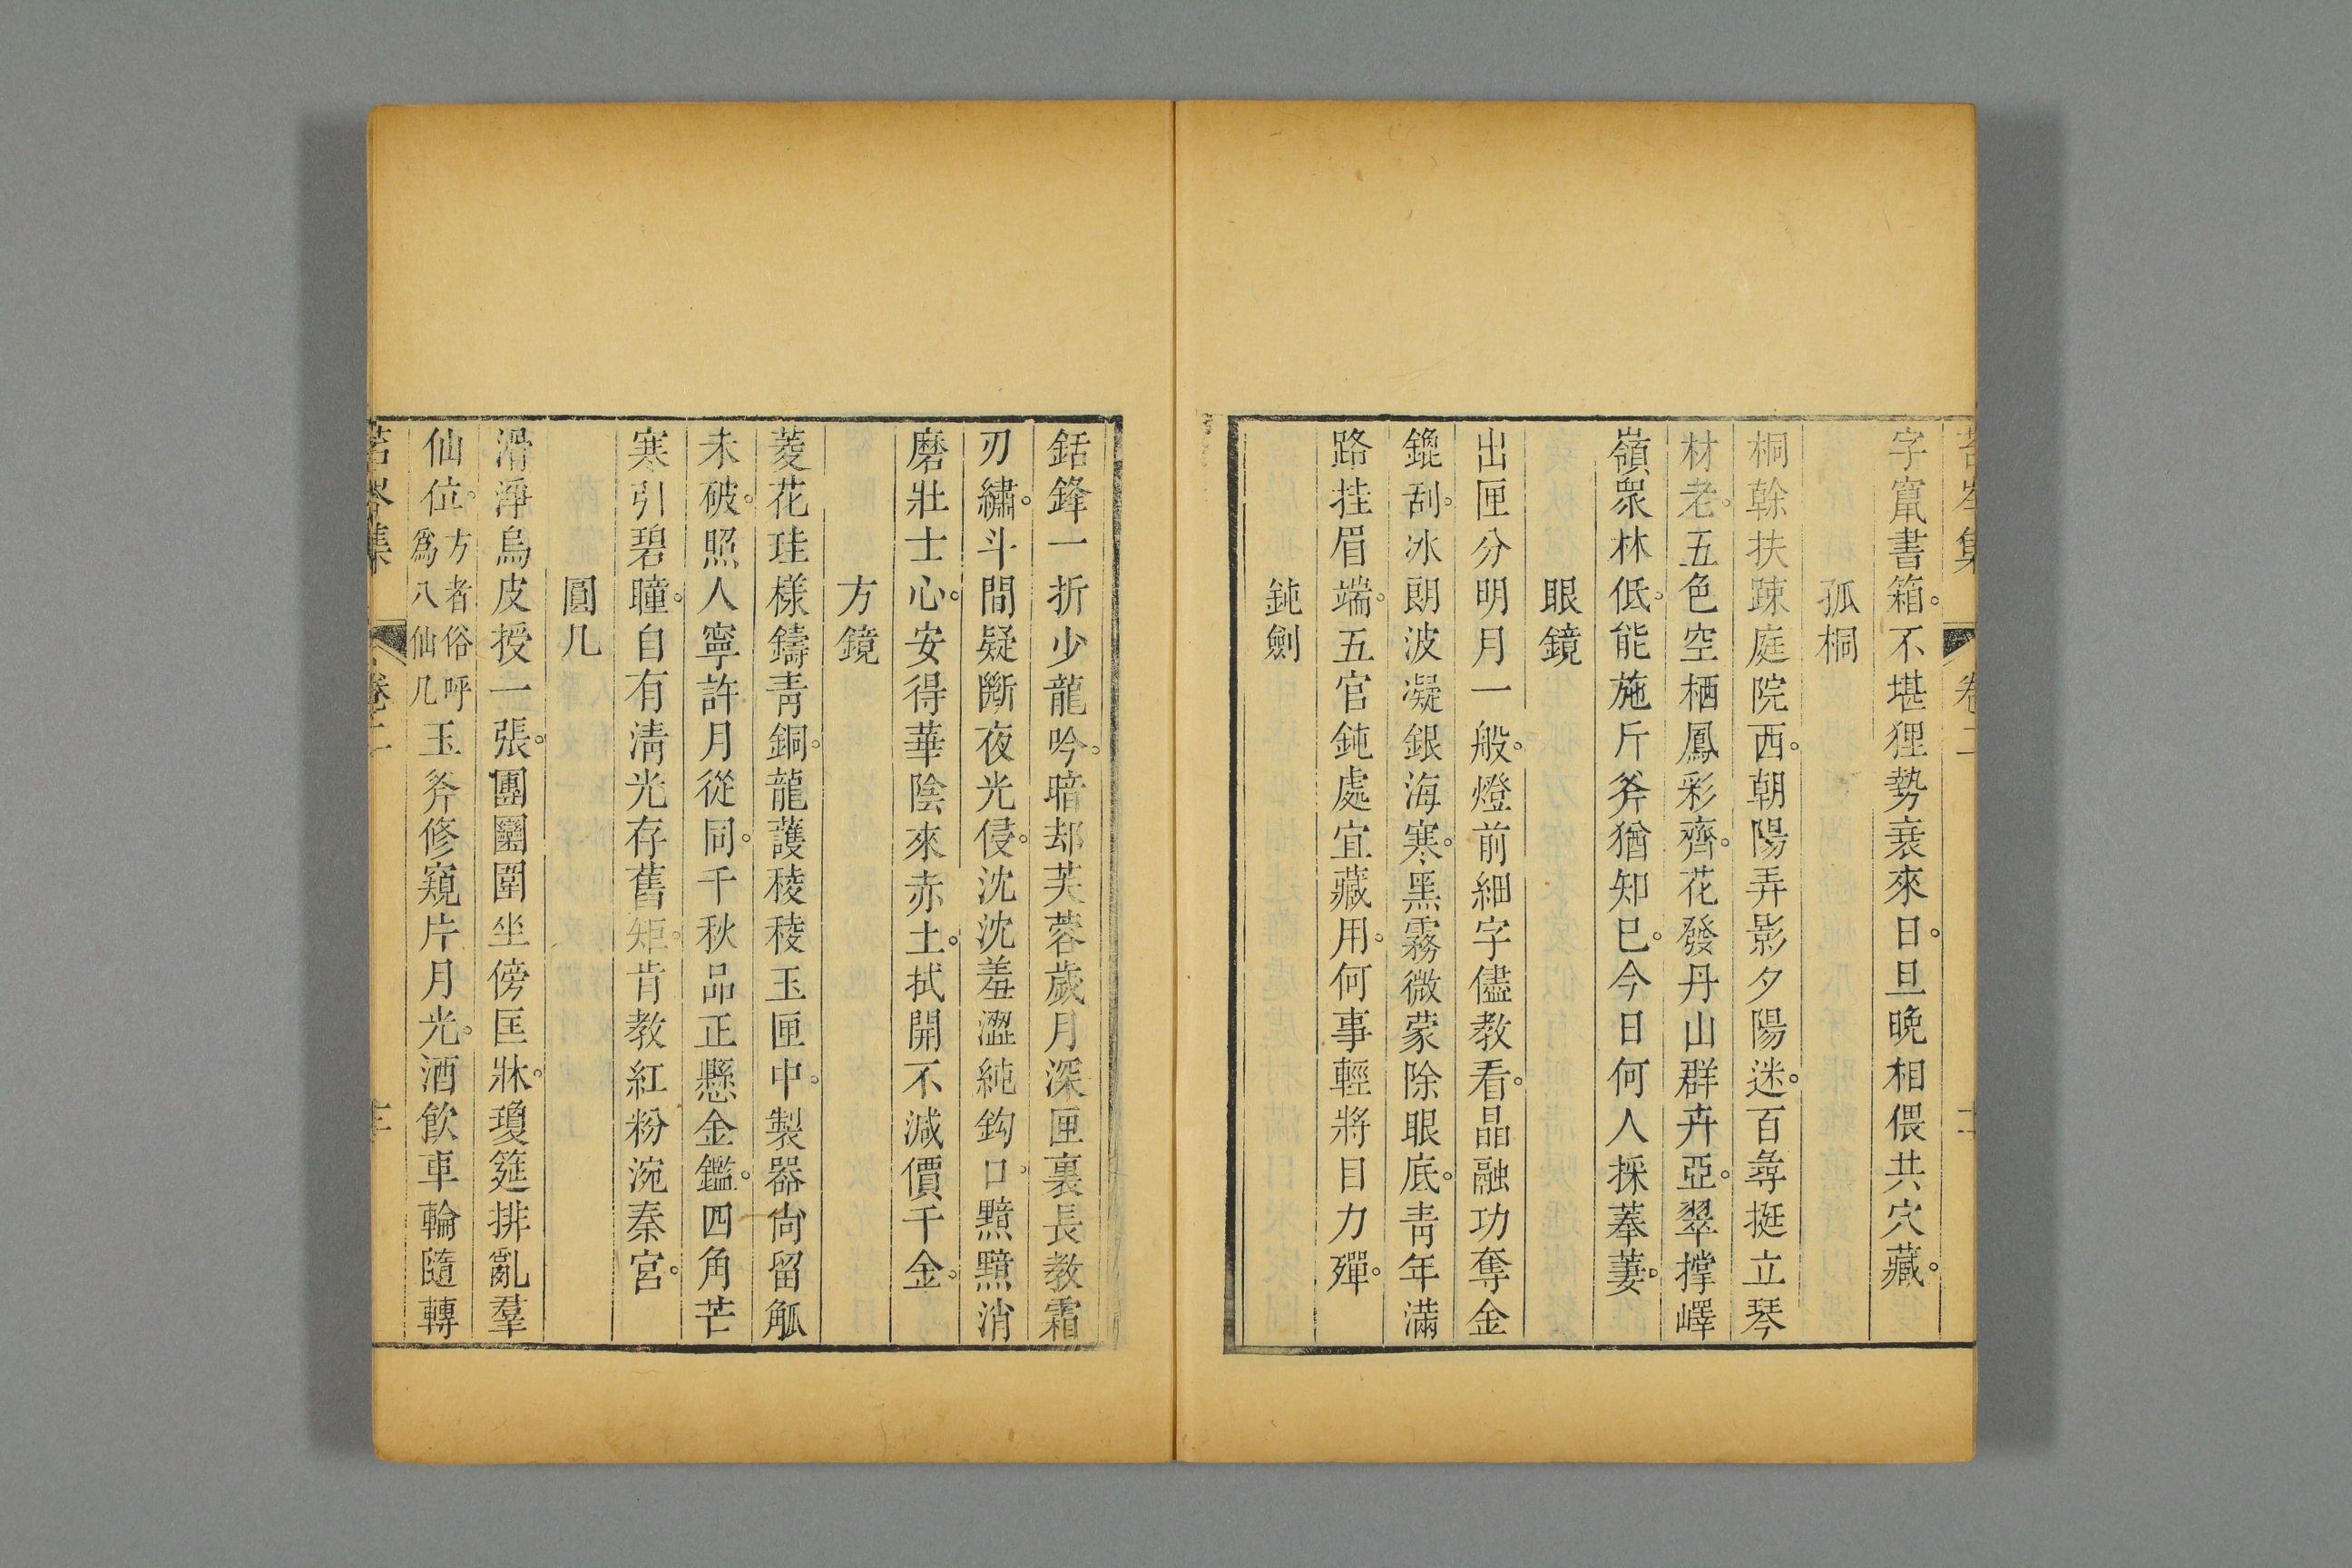 苔岑集 卷二
字竄書箱。不堪狸勢衰來日。旦晚相偎共穴藏。
孤桐
桐幹扶疎庭院西。朝陽弄影夕陽迷。百尋挺立琴
材老。五色空栖鳳彩齊。花發丹山群卉亞。翠撑嶧
嶺眾林低。能施斤斧猶知已。今日何人採菶萋。
眼鏡
出匣分明月一般。燈前細字儘教看。晶融功奪金
鎞刮。冰朗波凝銀海寒。黑霧微蒙除眼底。青年滿
路挂眉端。五官鈍處宜藏用。何事輕將目力殫。
鈍劍
銛鋒一折少龍吟。暗却芙蓉歲月深。匣裏長教霜
刃繡。斗間疑斷夜光侵。沈沈羞澀純鈎口。黯黯消
磨壯士心。安得華陰來赤土。拭開不減價千金。
方鏡
菱花珪樣鑄青銅。龍護稜稜玉匣中。製器尙留觚
未破。照人寧許月從同。千秋品正懸金鑑。四角芒
寒引碧瞳。自有清光存舊矩。肯教紅粉涴秦宮。
圓几
滑淨烏皮授一張。團圞圍坐傍匡牀。瓊筵排亂羣
仙位。方者俗呼爲八仙几玉斧修窺片月光。酒飲車輪隨轉
苔岑集 卷二